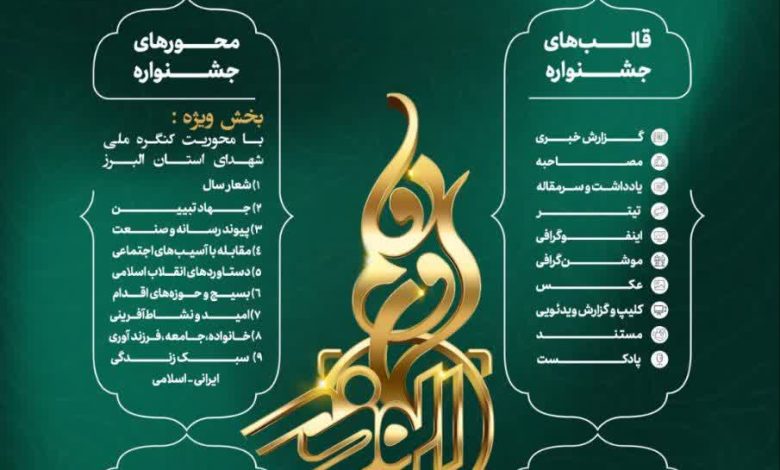 قالب‌های
جشنواره
گزارش خبری
مصاحبه
یادداشت و سرمقاله
تیتر
اینفوگرافی
موشن‌گرافی
عکس
کلیپ و گزارش ویدئویی
مستند
پادکست
محورهای
جشنواره
بخش ویژه :
با محوریت کنگره ملی
شهدای استان البرز
۱) شعار سال
۲) جهاد تبیین
۳) پیوند رسانه و صنعت
۴) مقابله با آسیب‌های اجتماعی
۵) دستاوردهای انقلاب اسلامی
۶) بسیج و حوزه‌های اقدام
۷) امید و نشاط‌آفرینی
۸) خانواده، جامعه، فرزندآوری
۹) سبک زندگی
ایرانی - اسلامی